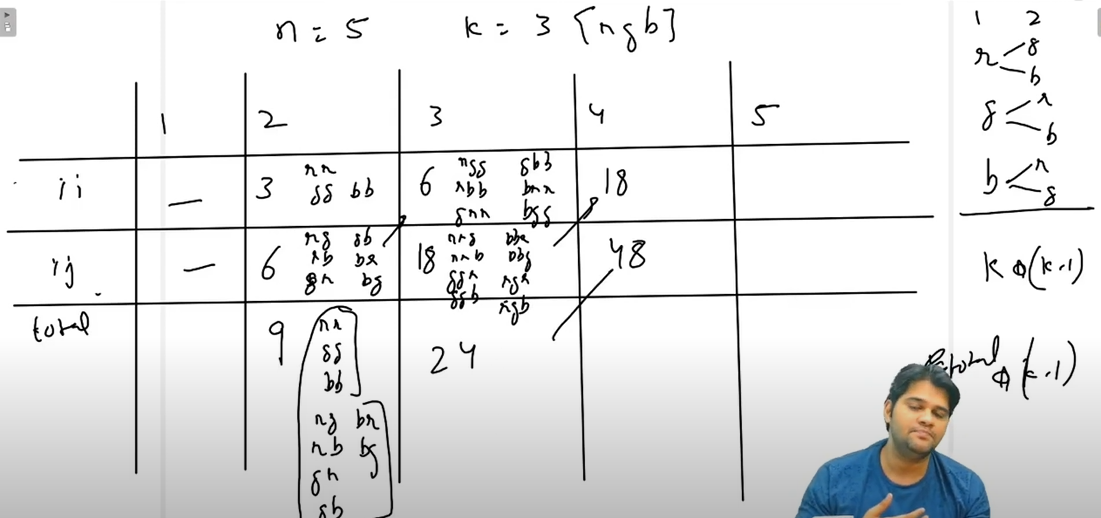 n = 5 k = 3 [rgb]
1 2 3 4 5
ii — 3 rr gg bb 6 rgg rbb grr gbb brr bgg 18
ij — 6 rg rb gr gb br bg 18 rrg rrb ggr ggb bbr bbg rgr rgb 48
total 9 rr gg bb rg rb gr gb br bg 24
1 2
r g b
g r b
b r g
k * (k-1)
* (k-1)